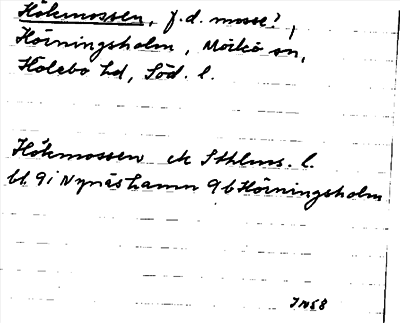 Hökmossen, f.d. mosse?,
Hörningsholm, Mörkö sn,
Holebo hd, Söd. l.
Hökmossen ek Sthlms. l.
bl. 9i Nynäshamn 9b Hörningsholm